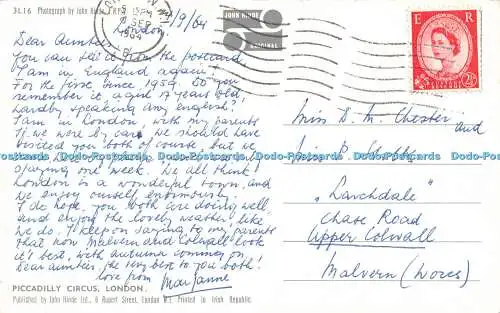 3L16 Photograph by John Hinde F.R.P.S.
JOHN HINDE
ORIGINAL
London, 1/9/64
SEP
1964
E R
2½D
Dear Aunties,
You can see it from the postcard
I am in England again!
For the first since 1959. Do you
remember it, a girl of 13 years old,
hardly speaking any English?
I am in London, with my parents
If we were by car, we should have
visited you both of course, but we
staying one week. We all think
London is a wonderful town, and
we enjoy ourself enormously.
I do hope you both are doing well,
and enjoy the lovely weather like
we do. I keep on saying to my parents
that now Malvern and Colwall look
it's best, with autumn coming on
dear aunties, the very best to you both!
love from Marianne
Miss D. M. Chester and
Miss P.
"Larchdale"
Chase Road
Upper Colwall
Malvern (Worcs)
Dodo Postcards Dodo-Postcards Dodo-Postcards Dodo-Postcards Dodo-Postcards Dodo-Postcards
PICCADILLY CIRCUS, LONDON.
Published by John Hinde Ltd., 6 Rupert Street, London W.1. Printed in Irish Republic